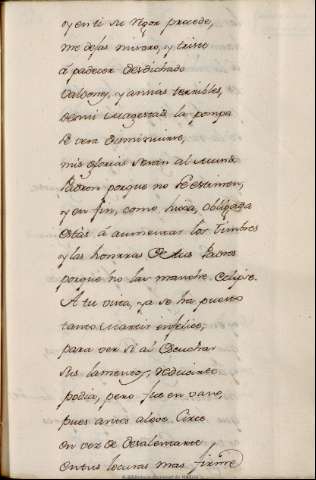 y en ti su rigor procede,
me dejas misero, y triste
á padecer desdichado
baldones, y ansias terribles,
de mi Magestad la pompa
se vera disminuirse,
mis glorias seran al mundo
porque no se estimen,
y en fin, como hija, obligada
estás á aumentar los timbres
y las honrras de tus
porque no las manche eclipse.
A tu vista, ya se ha puesto
tanto Martir infelice,
para ver si al escuchar
sus lamentos, reducirte
podia, pero fue en vano,
pues antes aleve Circe
en vez de desalentarte
en tus locuras mas firme